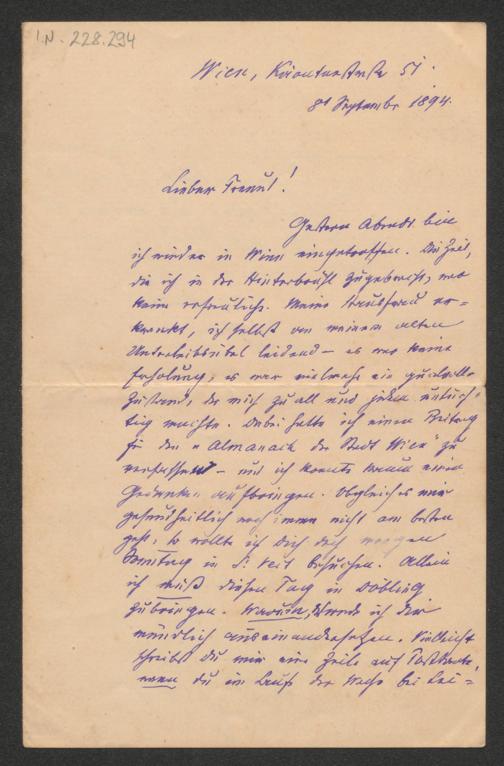 I.N. 228.294
Wien, Kärntnerstraße 51.
8t September 1894.
Lieber Freund!
Gestern Abends bin
ich wieder in Wien eingetroffen. Die Zeit,
die ich in der Hinterbrühl zugebracht, war
keine erfreuliche. Meine Hausfrau er-
krankt, ich selbst von meinem alten
Unterleibsübel leidend – es war keine
Erholung, es war vielmehr ein qualvoller
Zustand, der mich zu all und jedem untüch-
tig machte. Dabei hatte ich einen Beitrag
für den "Almanach der Stadt Wien" zu
verfassen – und ich konnte kaum einen
Gedanken aufbringen. Obgleich es mir
gesundheitlich noch immer nicht am besten
geht, so wollte ich Dich doch morgen
Sonntag in St. Veit besuchen. Allein
ich muß diesen Tag in Döbling
zubringen. Warum, werde ich Dir
mündlich auseinandersetzen. Vielleicht
schreibst du mir eine Zeile auf Postkarte,
wann du im Laufe der Woche bei Lei=